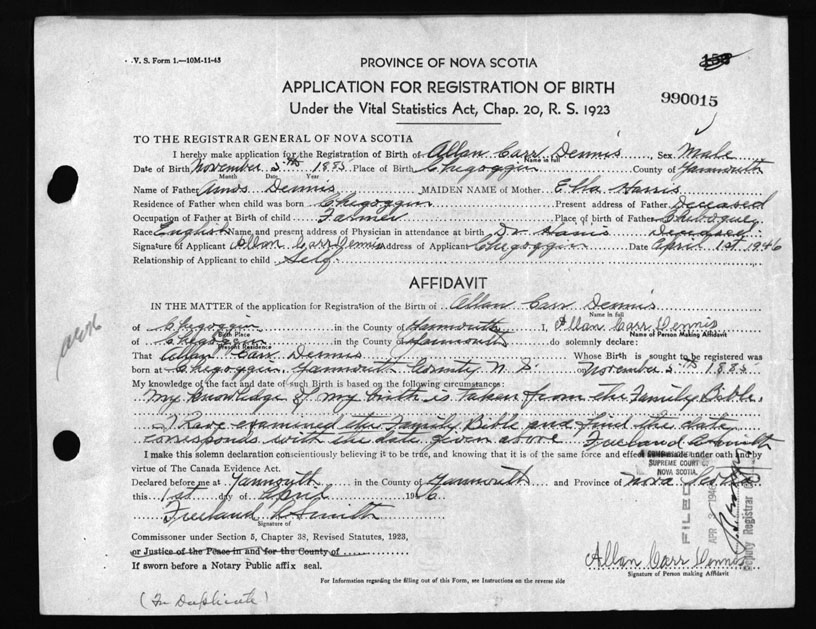 V. S. Form 1.—10M-11-43
PROVINCE OF NOVA SCOTIA
APPLICATION FOR REGISTRATION OF BIRTH
Under the Vital Statistics Act, Chap. 20, R. S. 1923
990015
TO THE REGISTRAR GENERAL OF NOVA SCOTIA
I hereby make application for the Registration of Birth of Allan Carr Dennis, Sex Male
Name in full
Date of Birth November 5th 1885 Place of Birth Chegoggin County of Yarmouth
Month Date Year
Name of Father Amos Dennis MAIDEN NAME of Mother Etta Harris
Residence of Father when child was born Chegoggin Present address of Father Deceased
Occupation of Father at Birth of child Farmer Place of birth of Father Chebogue
Race English Name and present address of Physician in attendance at birth Dr Harris Deceased.
Signature of Applicant Allan Carr Dennis Address of Applicant Chegoggin Date April 1st 1946
Relationship of Applicant to child Self.
AFFIDAVIT
IN THE MATTER of the application for Registration of the Birth of Allan Carr Dennis
Name in full
of Chegoggin in the County of Yarmouth I, Allan Carr Dennis
Birth Place Name of Person Making Affidavit
of Chegoggin in the County of Yarmouth do solemnly declare:
Present Residence
That Allan Carr Dennis Whose Birth is sought to be registered was
born at Chegoggin, Yarmouth County N. S. on November 5th 1885
My knowledge of the fact and date of such Birth is based on the following circumstances:
My knowledge of my birth is taken from the Family Bible.
I Have examined the Family Bible and find the date
corresponds with the date given above Freeland C Smith
I make this solemn declaration conscientiously believing it to be true, and knowing that it is of the same force and effect as if made under oath and by
virtue of The Canada Evidence Act.
SUPREME COURT OF
NOVA SCOTIA.
Declared before me at Yarmouth in the County of Yarmouth and Province of Nova Scotia
this 1st day of April 1946
Freeland C Smith
Signature of
Commissioner under Section 5, Chapter 38, Revised Statutes, 1923,
or Justice of the Peace in and for the County of
If sworn before a Notary Public affix seal.
FILED
APR 2 1946
Deputy Registrar
Allan Carr Dennis
Signature of Person making Affidavit
For Information regarding the filling out of this Form, see Instructions on the reverse side
(In Duplicate)